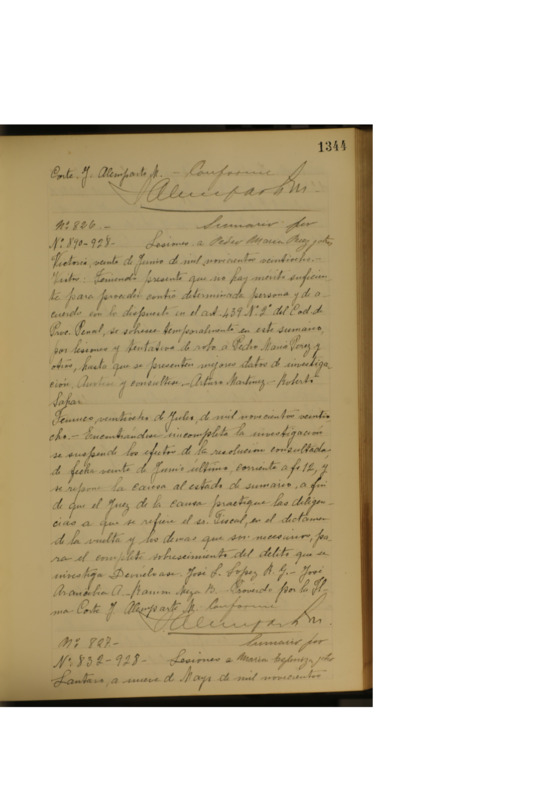 1344
Corte. J. Alemparte M. - Conforme
Alemparte M.
Nº 826.- Sumario por
Nº 890-928- Lesiones a Pedro María Perez y otro
Victoria, veinte de Junio de mil novecientos veintiocho.-
Vistos: Teniendo presente que no hay mérito suficien
te para proceder contra determinada persona y de a-
cuerdo con lo dispuesto en el art. 439 Nº 2º del Cod. de
Proc. Penal, se sobresee temporalmente en este sumario,
por lesiones y tentativa de robo a Pedro Maria Perez y
otro, hasta que se presenten mejores datos de investiga
ción. Anótese y consúltese.- Arturo Martinez.- Roberto
Safar.
Temuco, veintiocho de Julio, de mil novecientos veintio
cho.- Encontrándose incompleta la investigación
se suspende los efectos de la resolución consultada,
de fecha veinte de Junio último, corriente a fs 12, y
se repone la causa al estado de sumario, a fin
de que el Juez de la causa practique las diligen-
cias a que se refiere el Sr. Fiscal, en el dictamen
de la vuelta y los demas que son necesarios, pa
ra el completo esclarecimiento del delito que se
investiga. Devuélvase. José L. Lopez R. G.- José
Arancibia A.- Ramon B. Proveido por la Ilt
ma Corte. J. Alemparte M. Conforme
Alemparte M.
Nº 827- Sumario por
Nº 832-928- Lesiones a Maria Espinoza y otro
Lautaro, a nueve de Mayo de mil novecientos